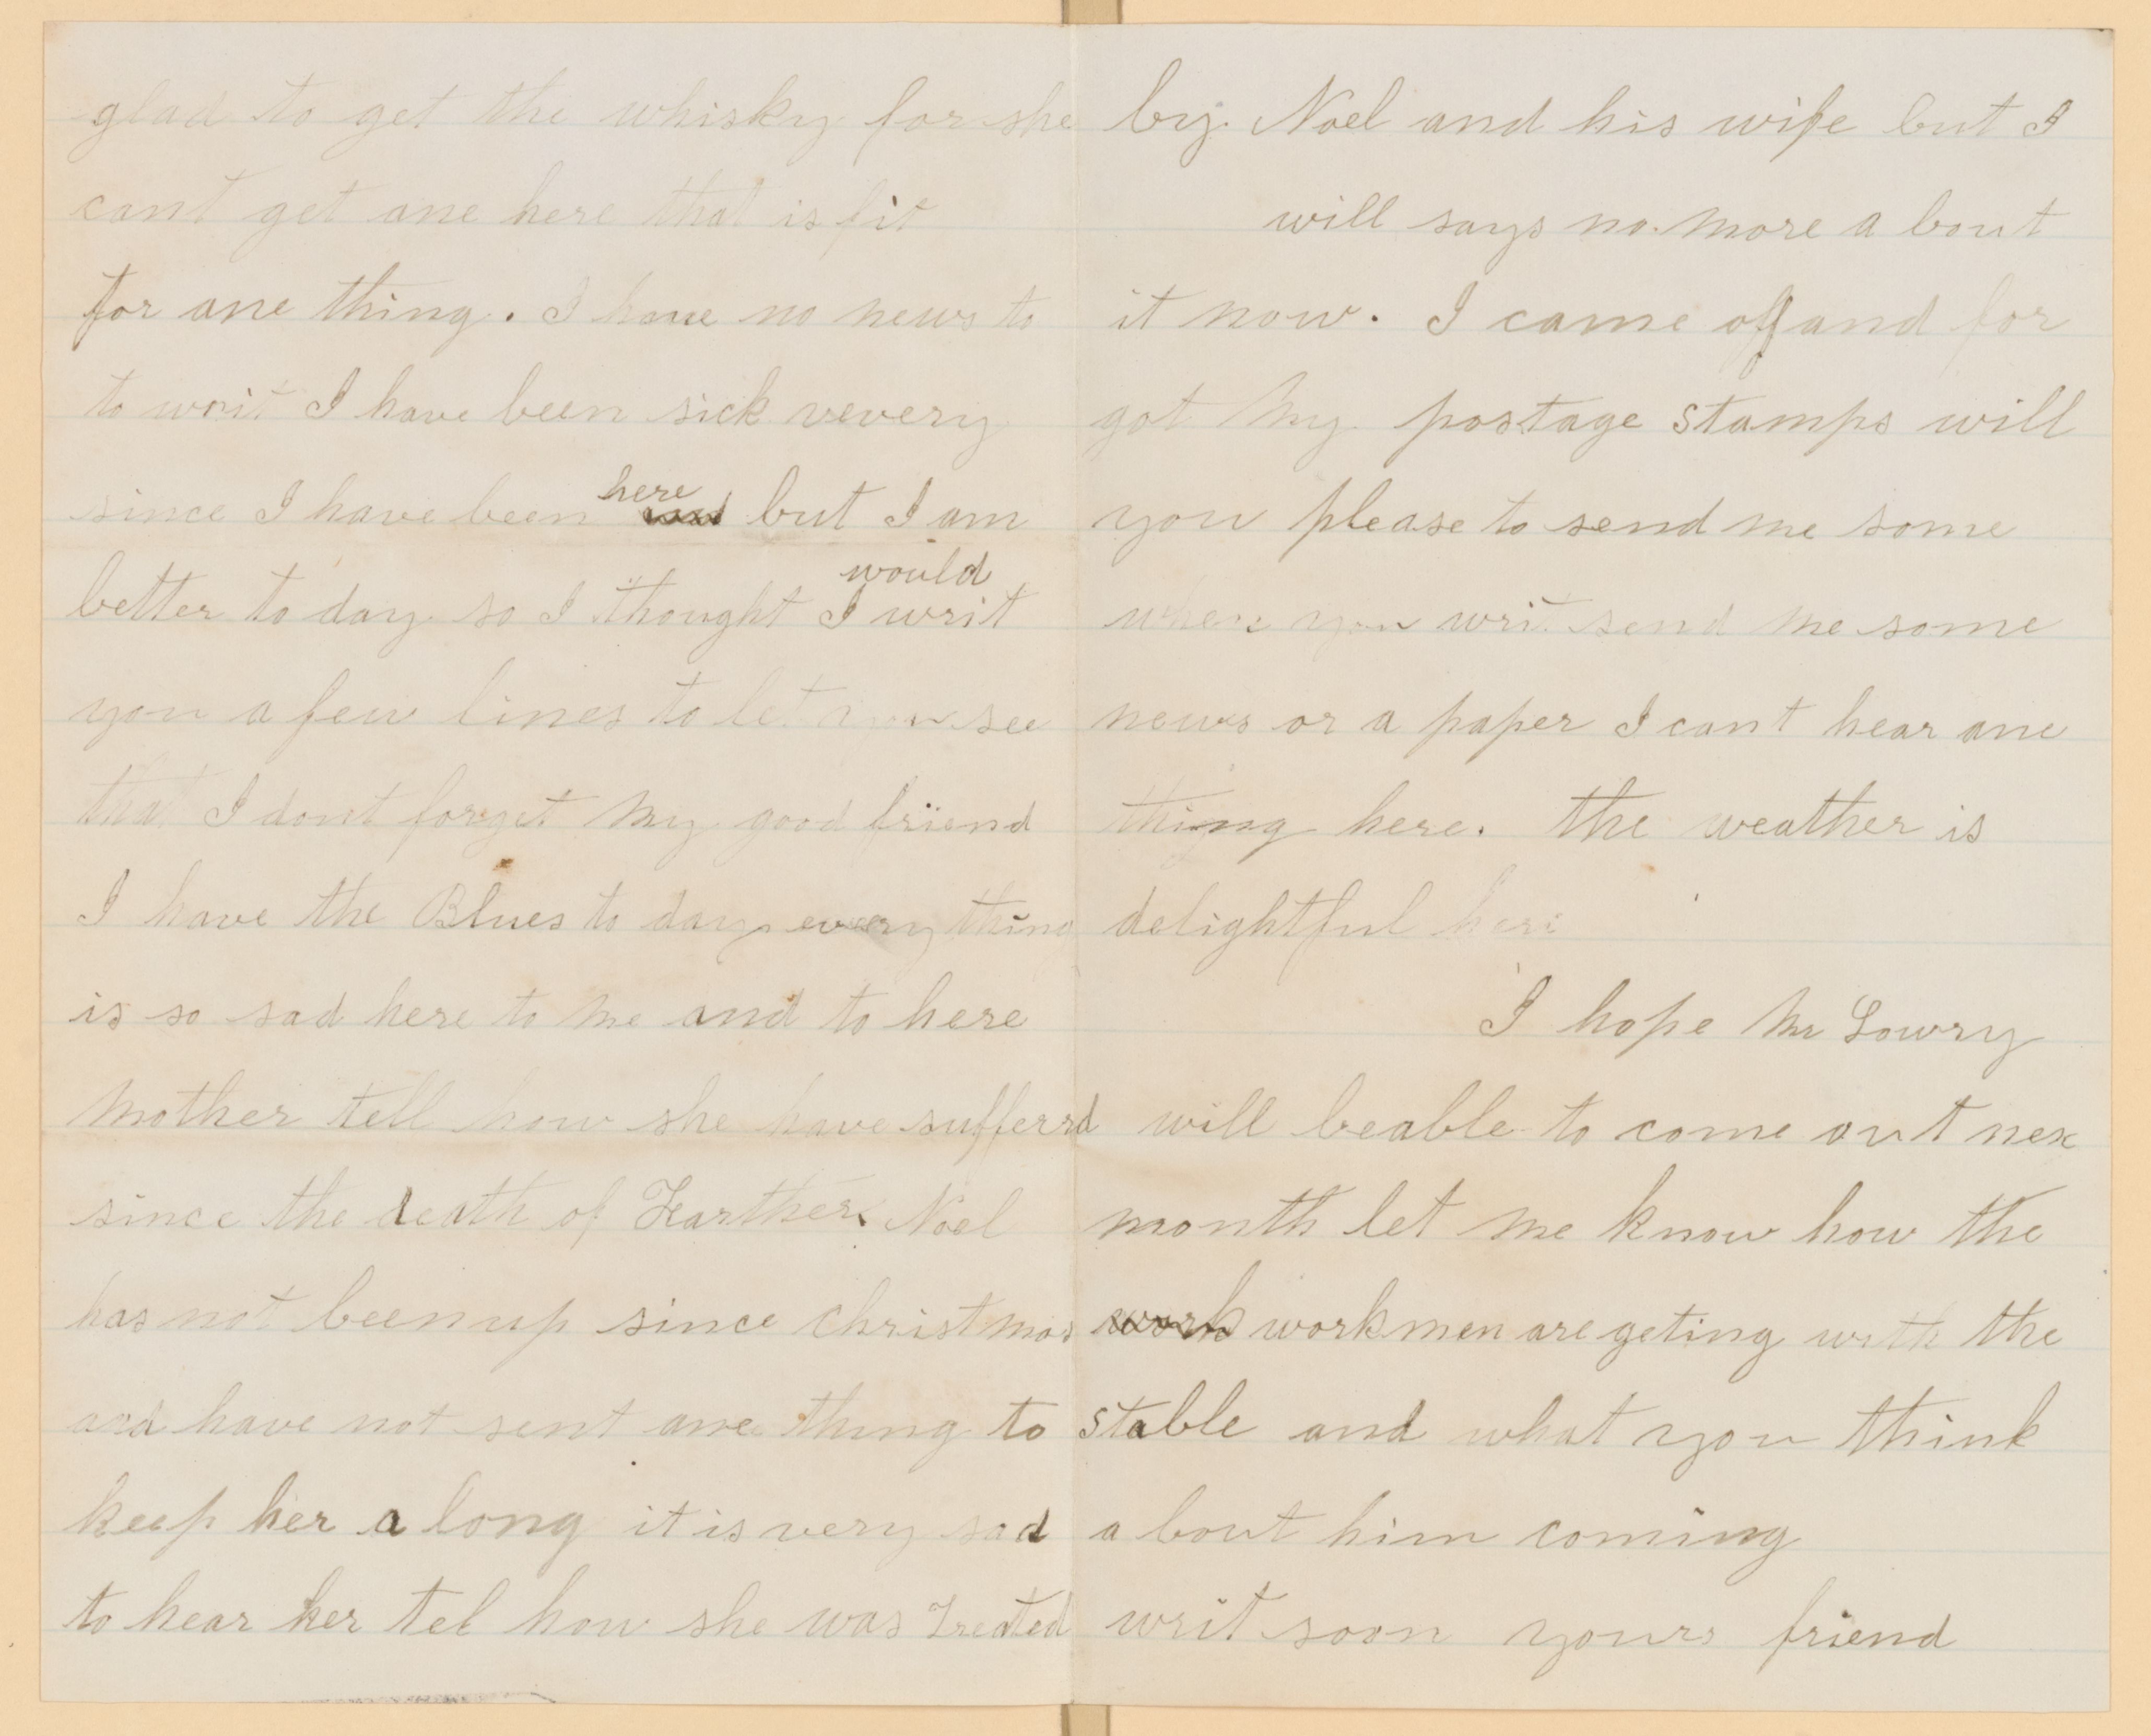 glad to get the whisky for she
cant get ane here that is fit
for ane thing. I have no news to
to writ I have been sick vevery
since I have been here but I am
better to day so I thought I would writ
you a few lines to let you see
that I dont forget my good friend
I have the Blues to day every thing
is so sad here to me and to here
mother tell how she have sufferrd
since the death of Farther. Noel
has not been up since christmas
and have not sent ane thing to
keep her a long it is very sad
to hear her tel how she was Treated
by Noel and his wife but I
will says no more a bout
it now. I came off and for
got my postage stamps will
you please to send me some
when you writ send me some
news or a paper I cant hear ane
thing here. the weather is
delightful here
I hope Mr Lowry
will beable to come out nex
month let me know how the
work workmen are geting with the
stable and what you think
a bout him coming
writ soon yours friend